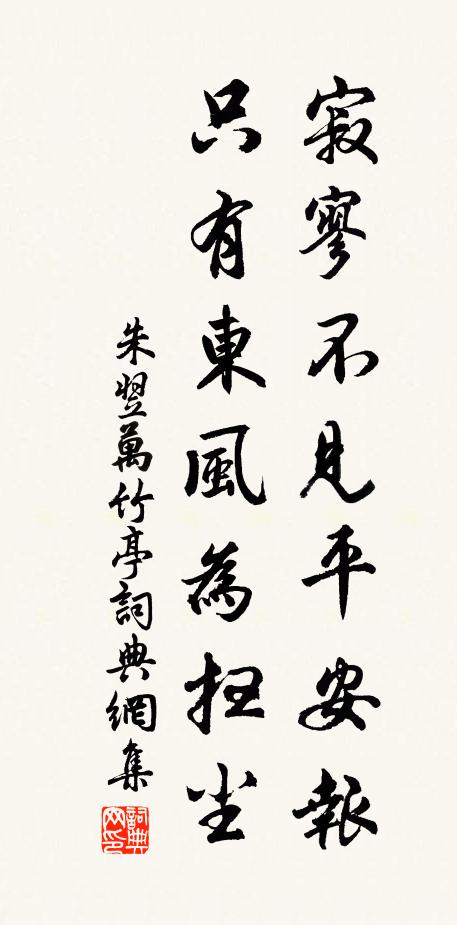 寂寥不見平安報
只有東風為扫尘
朱翌萬竹亭詞典網集
詞典网印